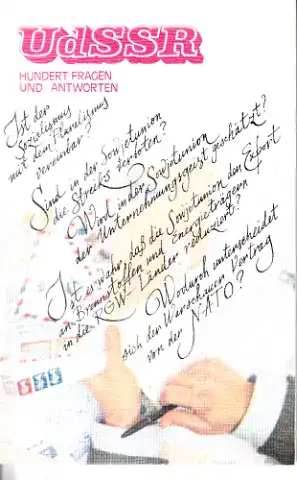 UdSSR
HUNDERT FRAGEN
UND ANTWORTEN
Ist der
Sozialismus
mit dem Pluralismus
vereinbar?
Sind in der Sowjetunion
die Streiks verboten?
Wird in der Sowjetunion
der Unternehmungsgeist geschätzt?
Ist es wahr, daß die Sowjetunion den Export
an Brennstoffen und Energieträgern
in die RGW-Länder reduziert?
Wodurch unterscheidet
sich der Warschauer Vertrag
von der NATO?